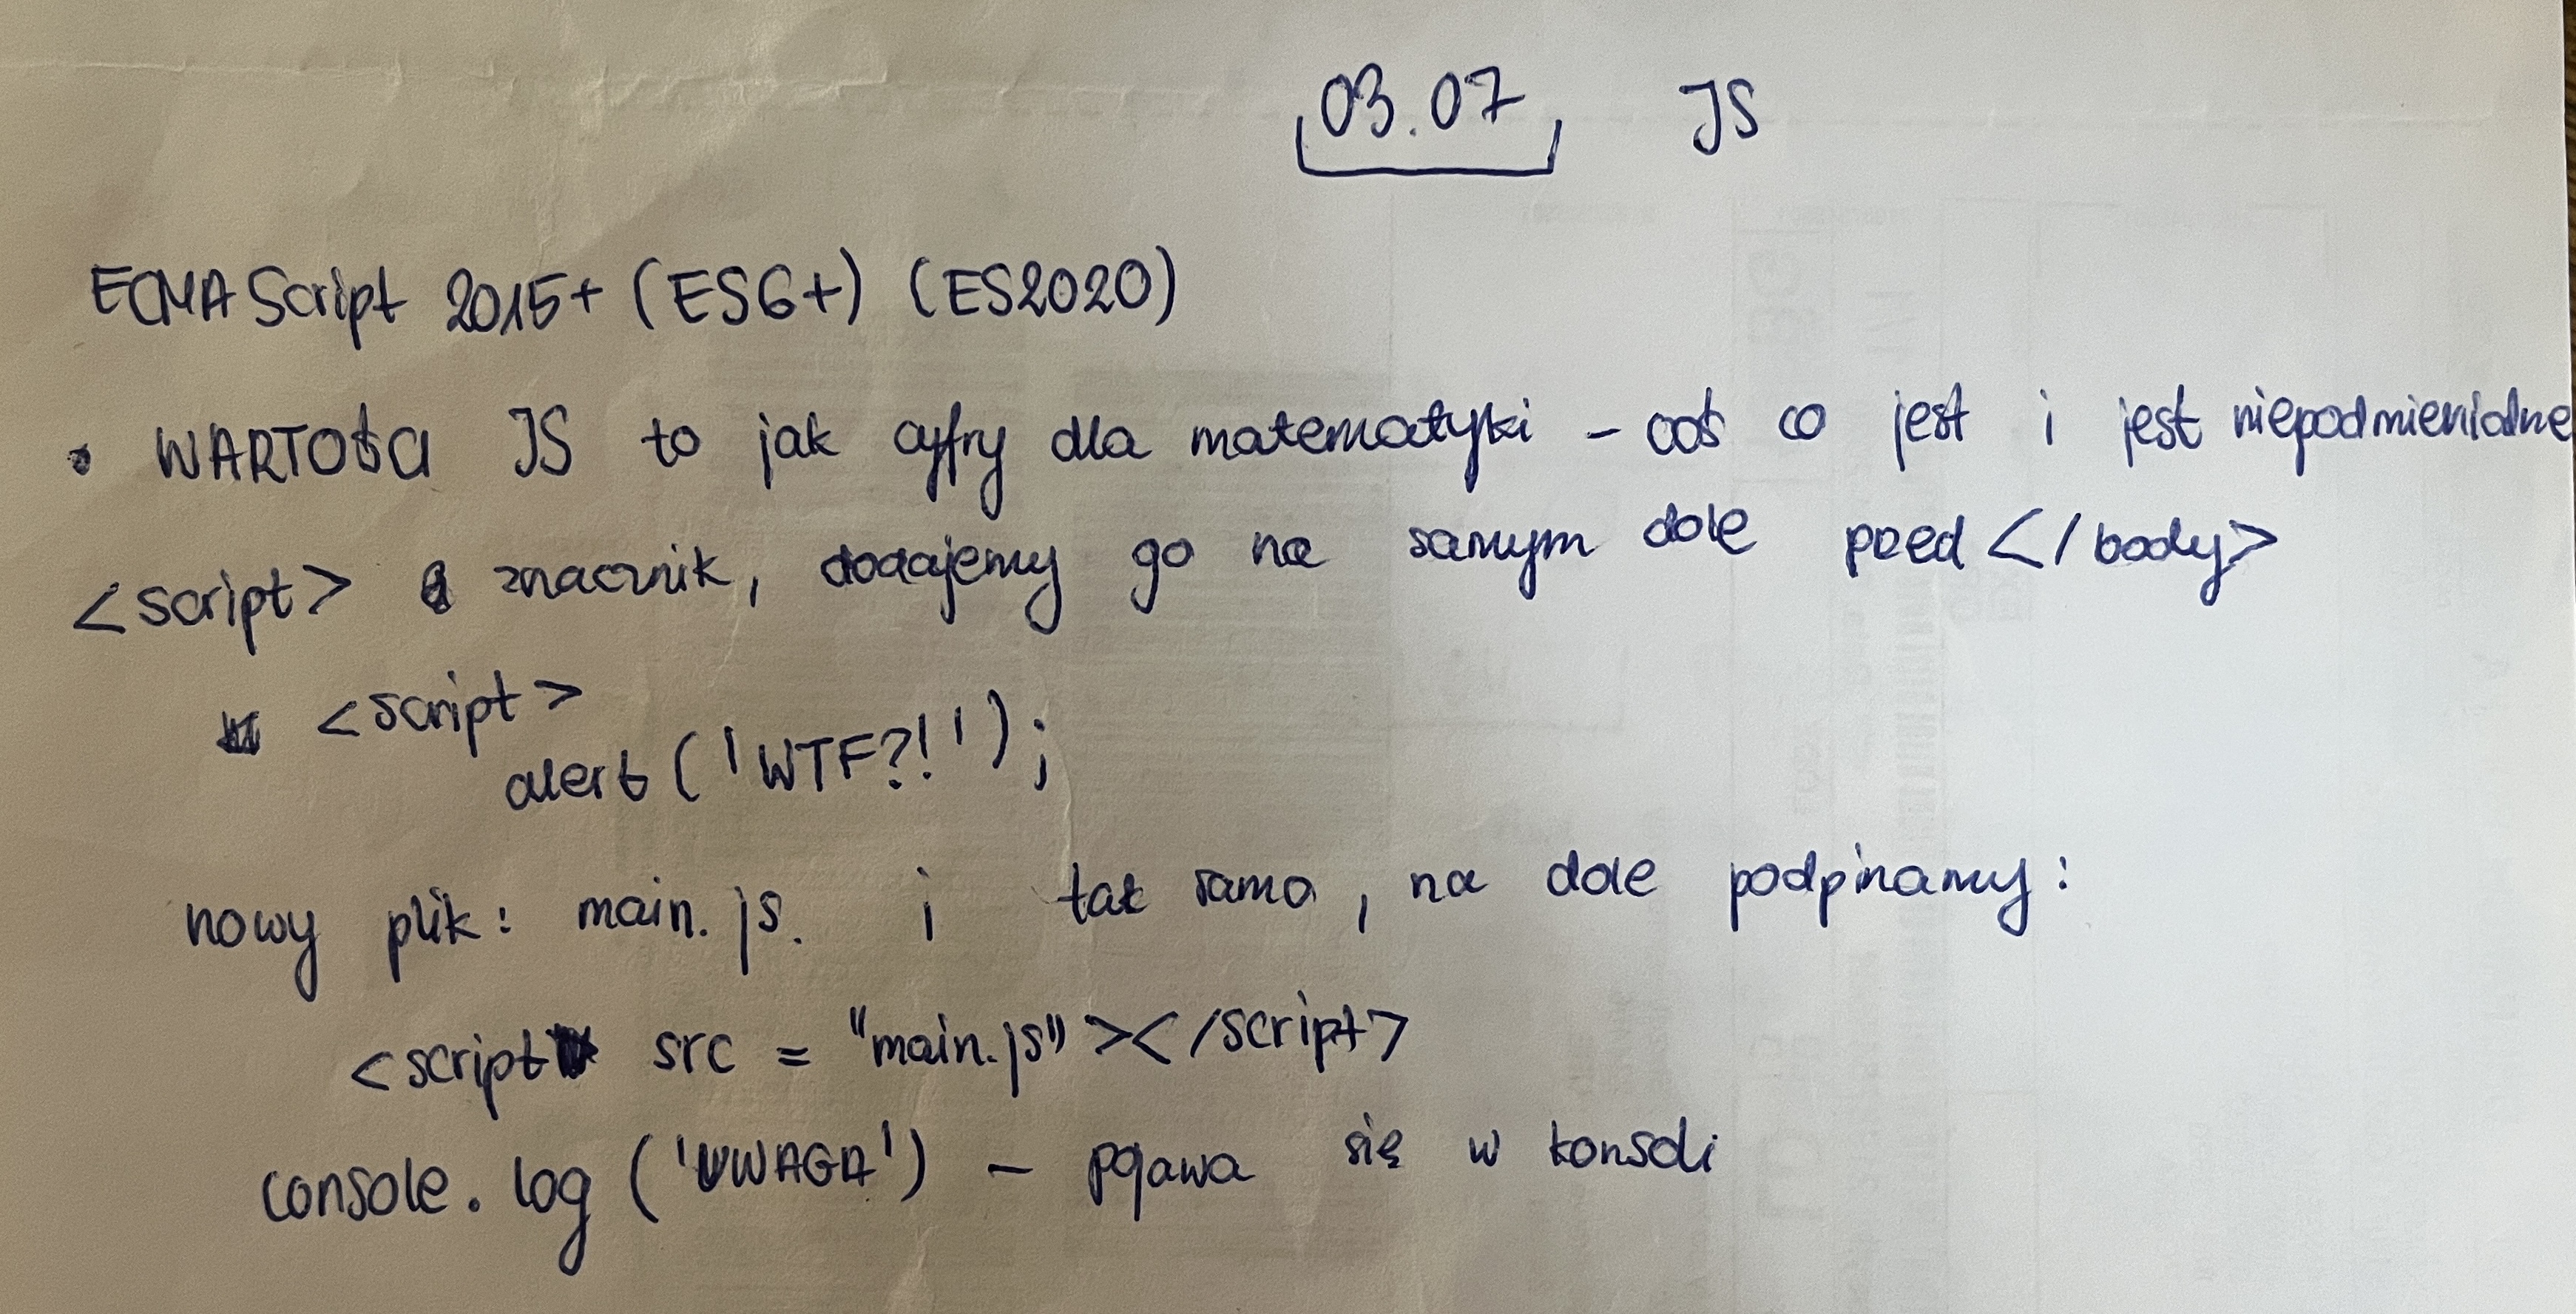 03.07 JS
ECMA Script 2015+ (ES6+) (ES2020)
• WARTOŚCI JS to jak cyfry dla matematyki - coś co jest i jest niepodmienialne
<script> znacznik, dodajemy go na samym dole przed </body>
<script>
alert ('WTF?!');
nowy plik: main.js. i tak samo, na dole podpinamy:
<script src = "main.js"></script>
console.log ('UWAGA') - pojawa się w konsoli